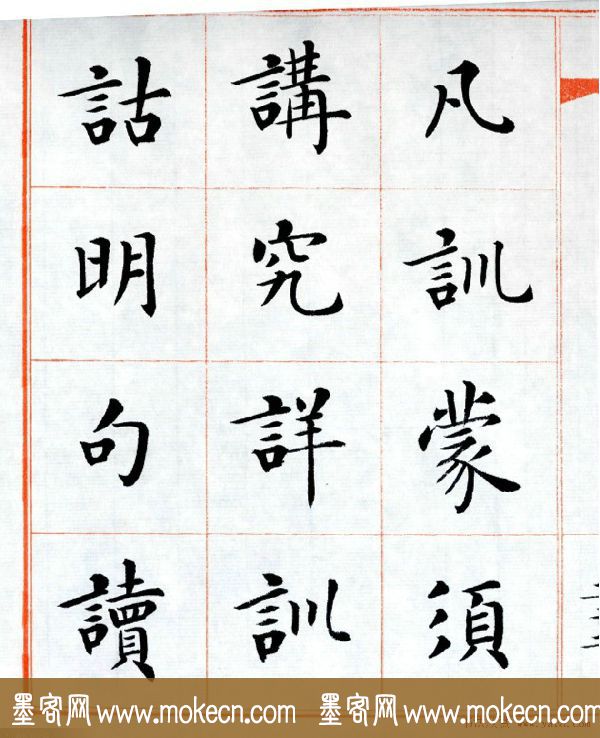 凡訓蒙須
講究詳訓
詁明句讀
墨客网 www.mokecn.com 墨客网 www.mokecn.com